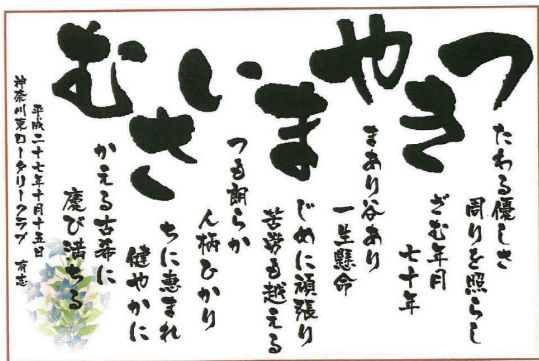 つたわる優しさ
周りを照らし
きざむ年月
七十年
やまあり谷あり
一生懸命
まじめに頑張り
苦労も越える
いつも朗らか
人柄ひかり
さちに恵まれ
健やかに
むかえる古希に
慶び満ちる
平成二十七年十月十五日
神奈川東ロータリークラブ 有志